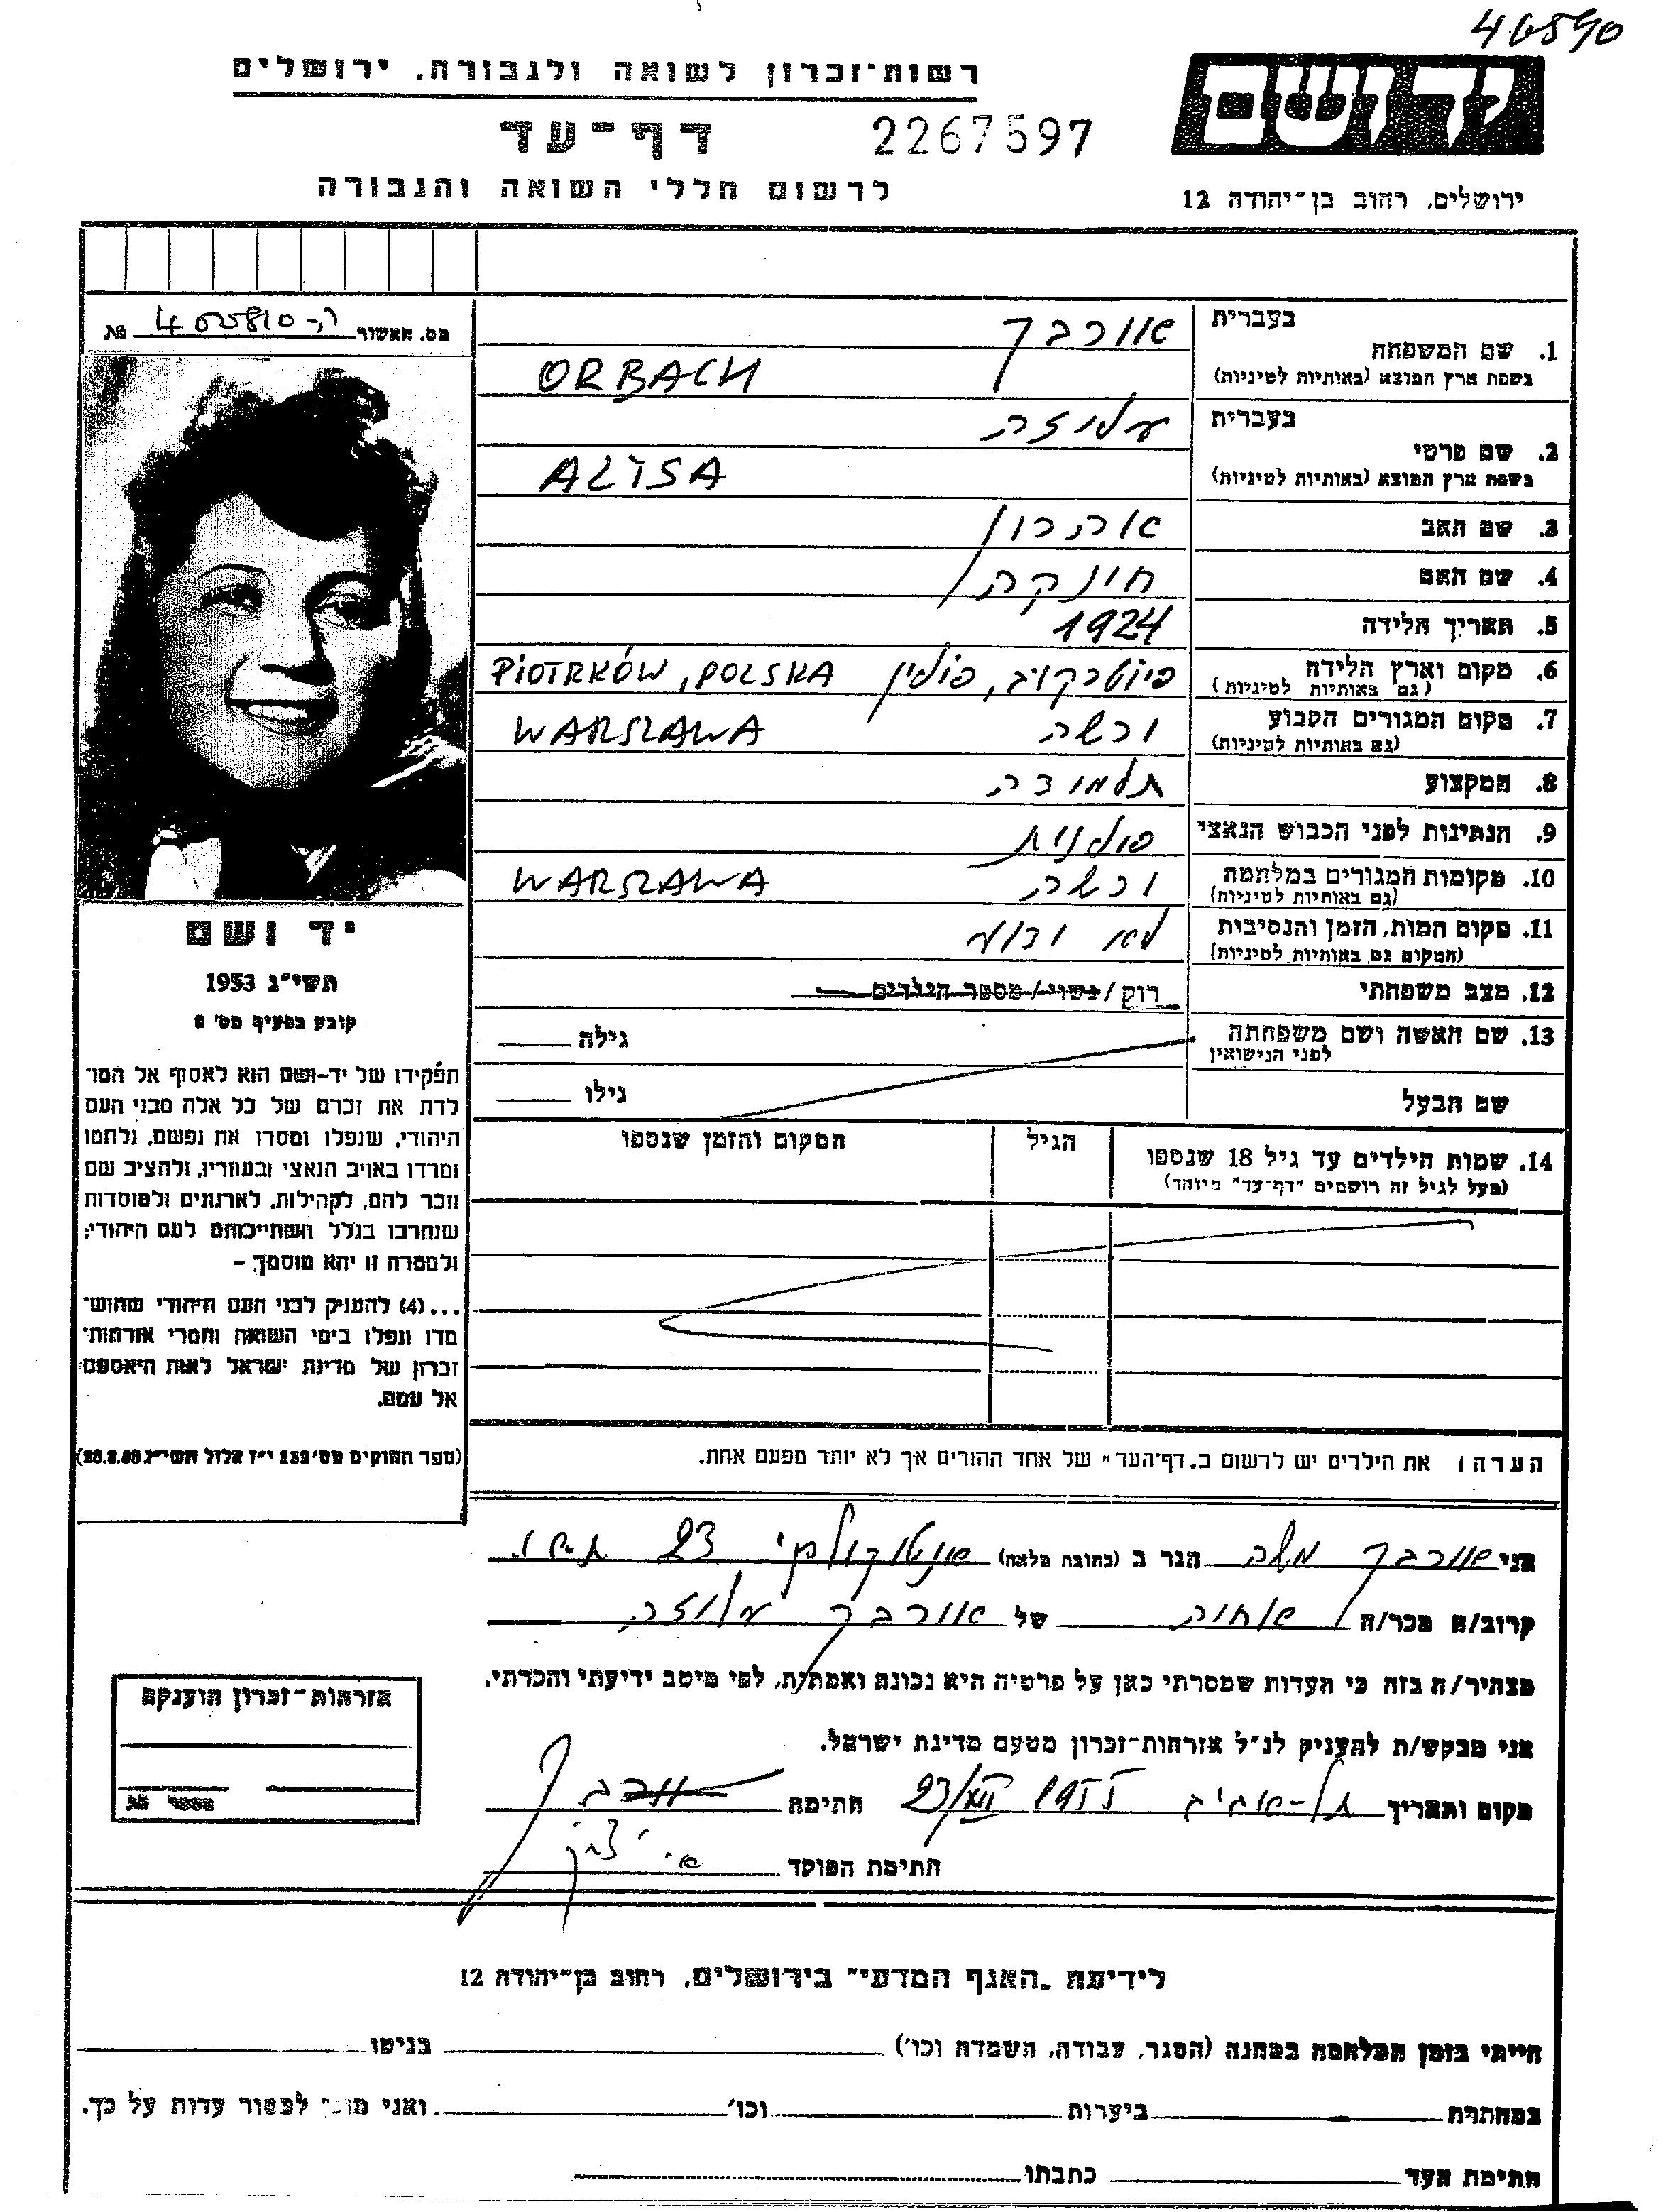 46590
רשות־זכרון לשואה ולגבורה, ירושלים
יד ושם
דף־עד
2267597
לרשום חללי השואה והגבורה
ירושלים, רחוב בן־יהודה 12
מס. האשור
1. שם המשפחה
בעברית
אורבך
בשפת ארץ המוצא (באותיות לטיניות)
ORBACH
2. שם פרטי
בעברית
עליזה
בשפת ארץ המוצא (באותיות לטיניות)
ALISA
3. שם האב
אהרון
4. שם האם
חינקה
5. תאריך הלידה
1924
6. מקום וארץ הלידה
(גם באותיות לטיניות)
פיוטרקוב, פולין PIOTRKÓW, POLSKA
7. מקום המגורים הקבוע
(גם באותיות לטיניות)
ורשה WARSZAWA
8. המקצוע
תלמידה
9. הנתינות לפני הכבוש הנאצי
פולנית
10. מקומות המגורים במלחמה
(גם באותיות לטיניות)
ורשה WARSZAWA
11. מקום המות, הזמן והנסיבות
(המקום גם באותיות לטיניות)
לא ידוע
12. מצב משפחתי
רוק / נשוי / מספר הילדים
13. שם האשה ושם משפחתה
לפני הנישואין
גילה
שם הבעל
גילו
14. שמות הילדים עד גיל 18 שנספו
(מעל לגיל זה רושמים "דף־עד" מיוחד)
הגיל
המקום והזמן שנספו
יד ושם
תשי"ג 1953
קובע בסעיף מס'
תפקידו של יד-ושם הוא לאסוף אל המו־
לדת את זכרם של כל אלה מבני העם
היהודי, שנפלו ומסרו את נפשם, נלחמו
ומרדו באויב הנאצי ובעוזריו, ולהציב שם
וזכר להם, לקהילות, לארגונים ולמוסדות
שנחרבו בגלל השתייכותם לעם היהודי;
ולמטרה זו יהא מוסמך –
...(4) להעניק לבני העם היהודי שהוש־
מדו ונפלו בימי השואה והמרי אזרחות־
זכרון של מדינת ישראל לאות היאספם
אל עמם.
(ספר החוקים מס' 132 י"ז אלול תשי"ג 28.8.53)
הערה: את הילדים יש לרשום ב„דף־העד" של אחד ההורים אך לא יותר מפעם אחת.
אני אורבך משה הגר ב (כתובת מלאה) אנטוקולסקי 23 ת.א.
קרוב/ה מכר/ה אחיה של אורבך עליזה
מצהיר/ה בזה כי העדות שמסרתי כאן על פרטיה היא נכונה ואמתית, לפי מיטב ידיעתי והכרתי.
אני מבקש/ת להעניק לנ"ל אזרחות־זכרון מטעם מדינת ישראל.
מקום ותאריך תל-אביב 1955 חתימה אורבך
חתימת הפוקד
אזרחות־זכרון הוענקה
מספר
לידיעת „האגף המדעי" בירושלים, רחוב בן־יהודה 12
הייתי בזמן המלחמה במחנה (הסגר, עבודה, השמדה וכו') בגיטו
במחתרת ביערות וכו' ואני מוכן למסור עדות על כך.
חתימת העד כתבתו